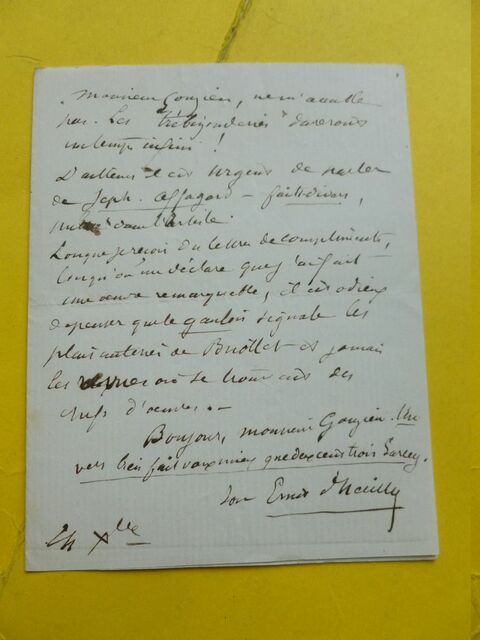 Monsieur Gouzien, ne m'accable
pas. Les Trébizonderies dureront
un temps infini !
D'ailleurs il est urgent de parler
de Joseph Affagard — faits-divers,
dans l'Artiste.
Lorsque je reçois des lettres de compliments,
lorsqu'on me déclare que j'ai fait
une œuvre remarquable, il est odieux
de penser que le gaulois signale les
plaisanteries de Briollet et jamais
les où se trouvent des
chefs d'œuvres. —
Bonjour, monsieur Gouzien. Un
vers bien fait vaux mieux que deux cent trois Sarcey.
Ton Ernest d'Hervilly